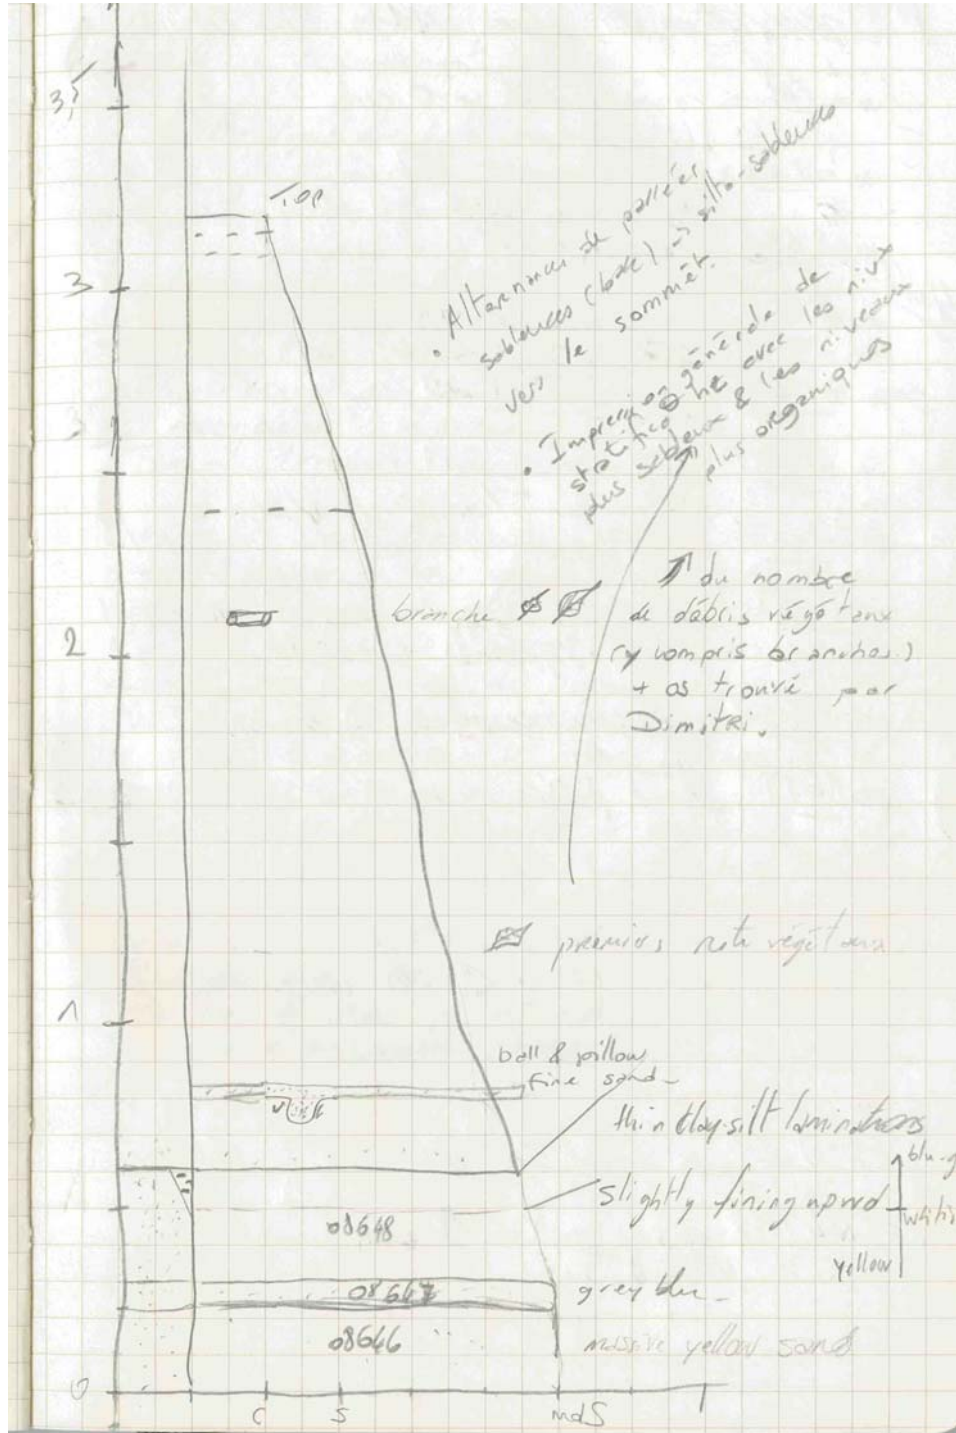 3,5
Top
3
• Alternances de passées
sableuses (base) → silto-sableuses
vers le sommet.
• Impression générale de
avec les nivx
plus sableux & les niveaux
plus organiques
2
branche
↗ du nombre
de débris végétaux
(y compris branches)
+ os trouvé par
Dimitri.
premiers végétaux
1
ball & pillow
fine sand
thin clay-silt laminations
blu-g
slightly fining upwrd
08648
yellow
08647
grey blu
08646
massive yellow sand
0
C S mdS